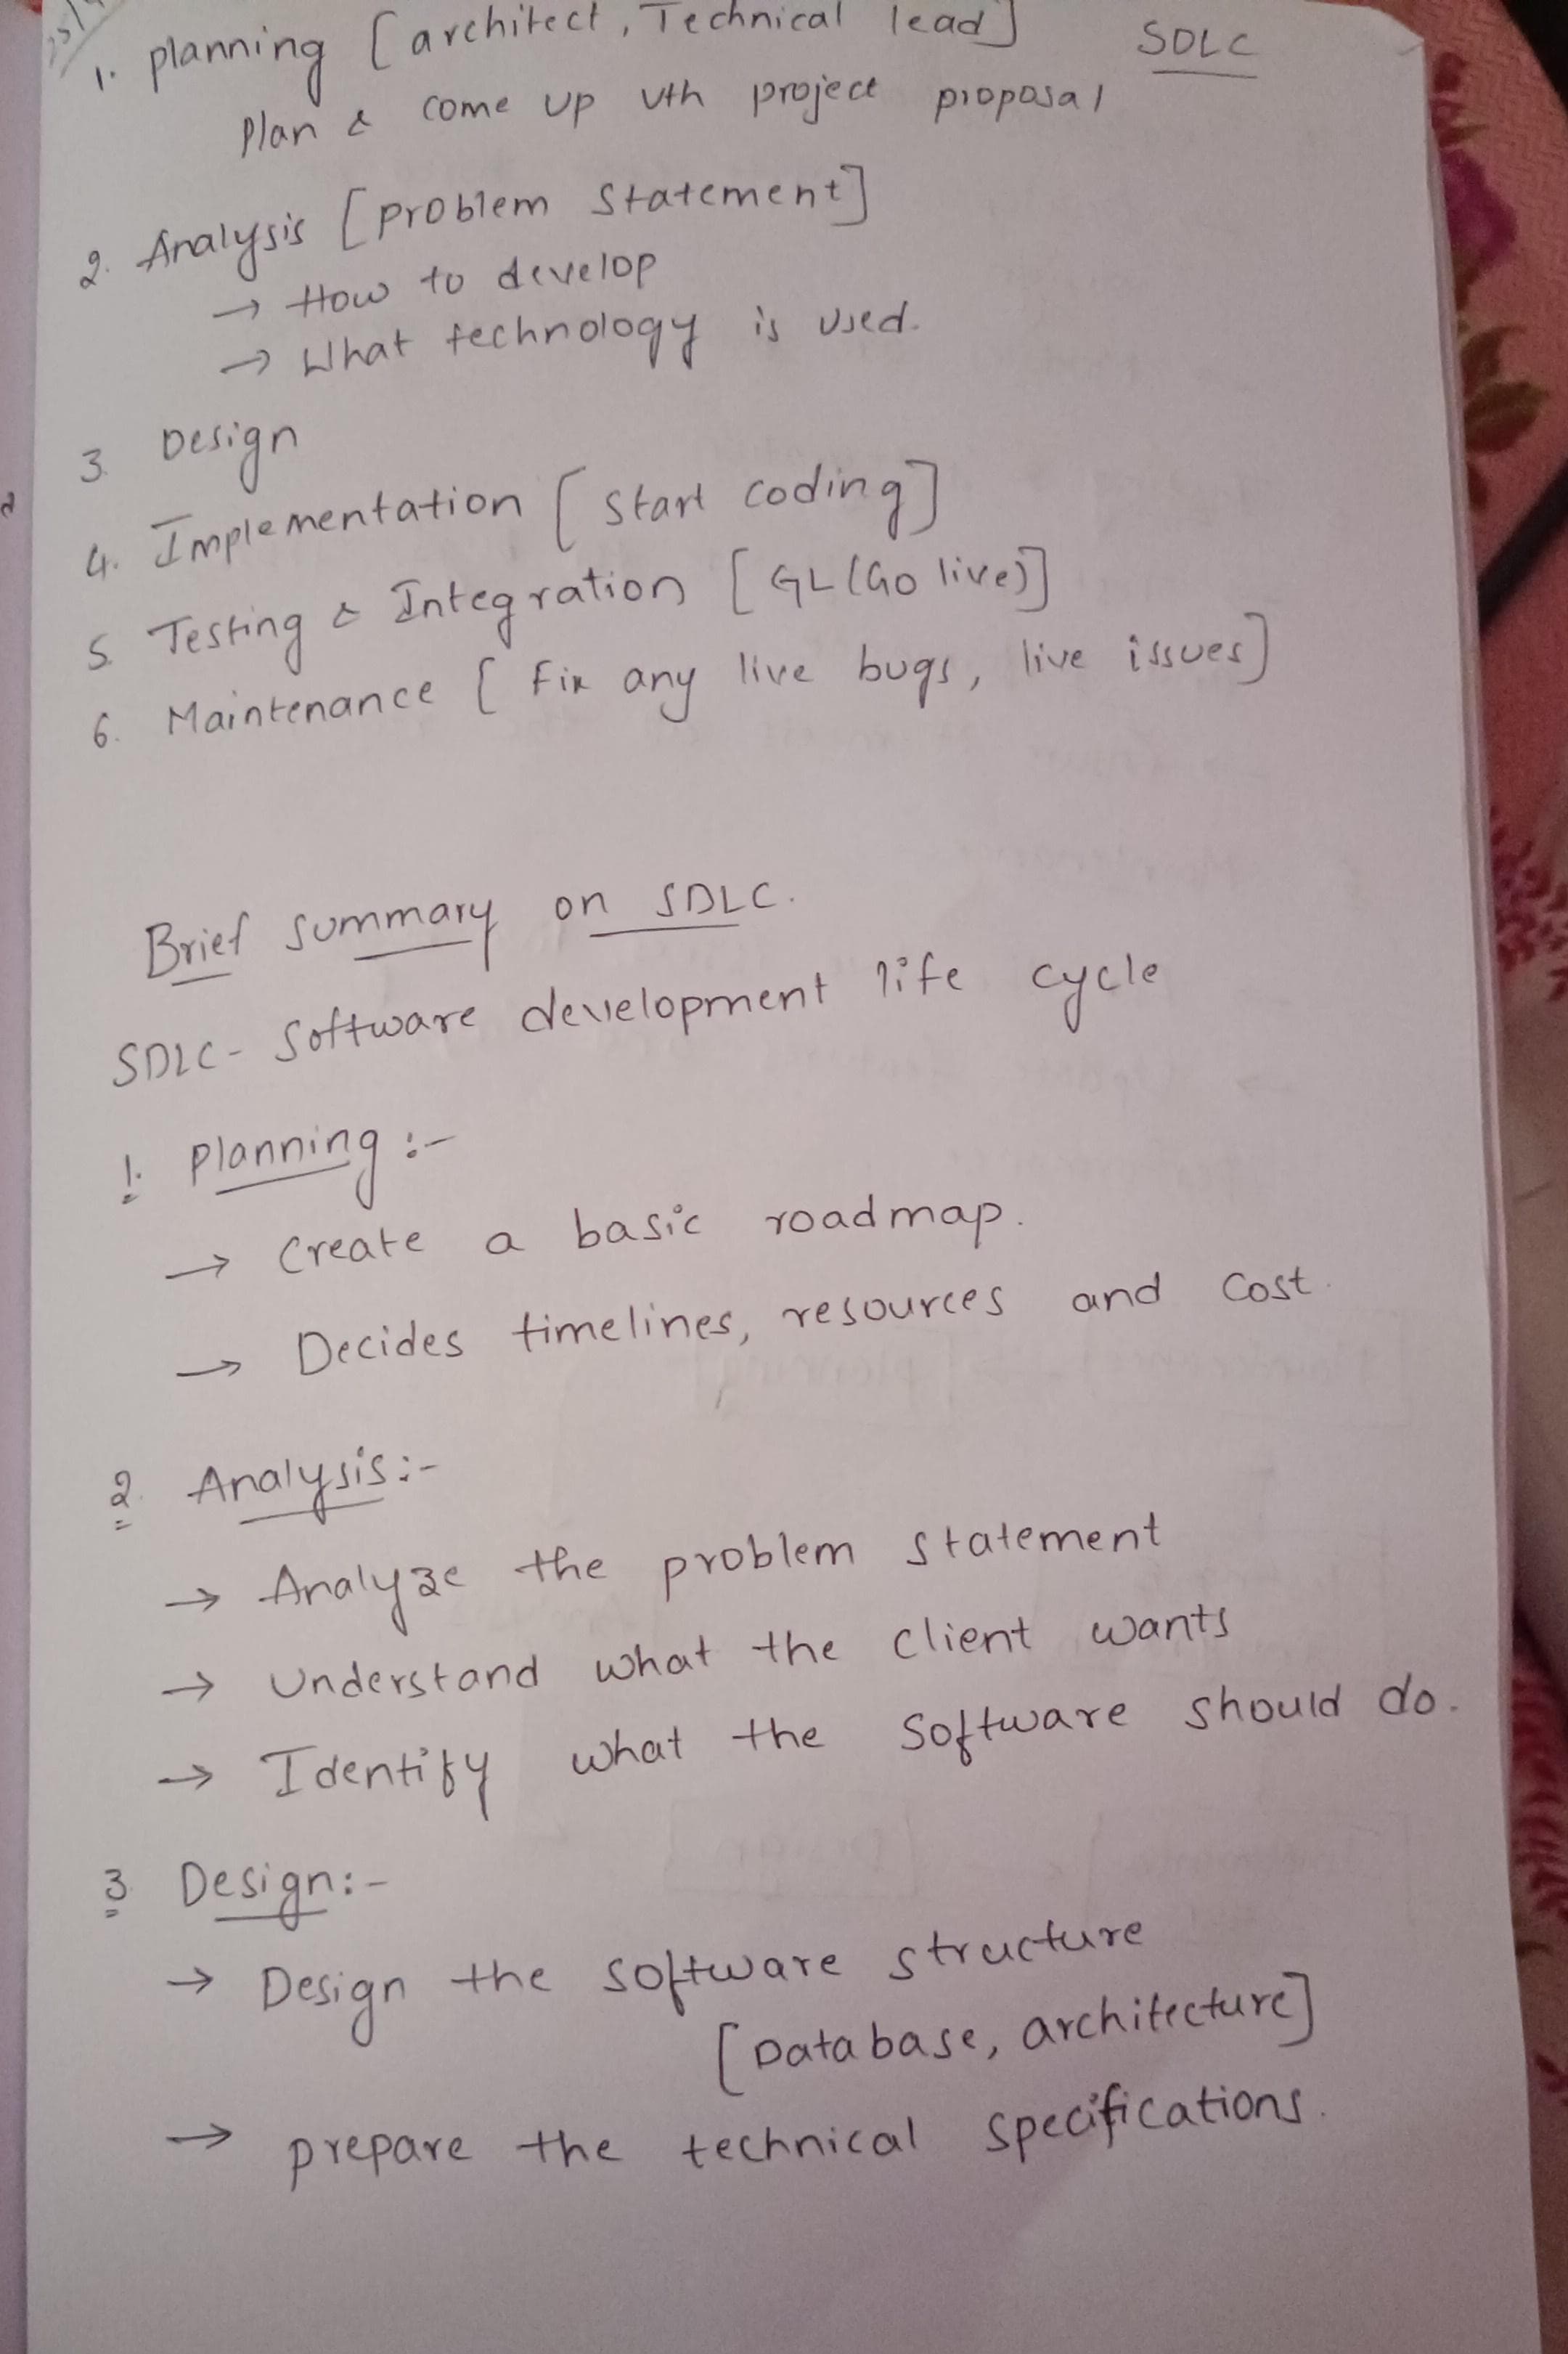 SDLC
1. planning [architect, Technical lead]
Plan & come up vth project proposal
2. Analysis [problem statement]
→ How to develop
→ What technology is used.
3. Design
4. Implementation [start coding]
5. Testing & Integration [GL(Go live)]
6. Maintenance [Fix any live bugs, live issues]
Brief summary on SDLC.
SDLC - Software development life cycle
1. Planning :-
→ Create a basic roadmap.
→ Decides timelines, resources and cost.
2. Analysis :-
→ Analyze the problem statement
→ Understand what the client wants
→ Identify what the software should do.
3. Design :-
→ Design the software structure
[Database, architecture]
→ prepare the technical specifications.